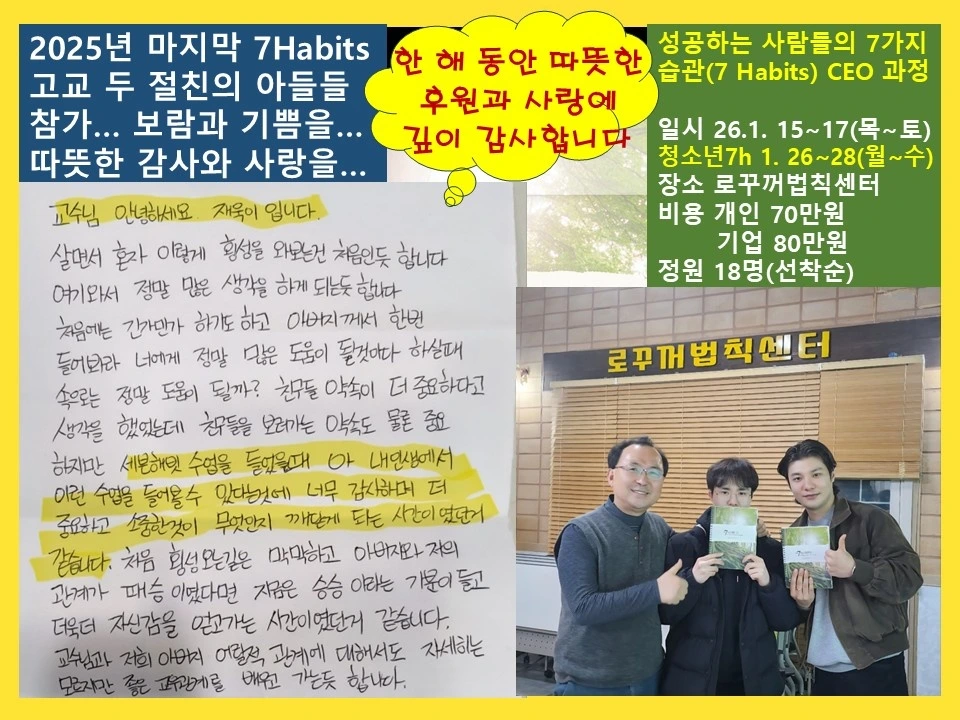 2025년 마지막 7Habits
고교 두 절친의 아들들
참가... 보람과 기쁨을...
따뜻한 감사와 사랑을...
한 해 동안 따뜻한
후원과 사랑에
깊이 감사합니다
성공하는 사람들의 7가지
습관(7 Habits) CEO 과정
일시 26.1. 15~17(목~토)
청소년7h 1. 26~28(월~수)
장소 로꾸꺼법칙센터
비용 개인 70만원
기업 80만원
정원 18명(선착순)
교수님 안녕하세요. 재욱이 입니다.
살면서 혼자 이렇게 횡성을 와보는건 처음인듯 합니다
여기와서 정말 많은 생각을 하게 되는듯 합니다
처음에는 긴가민가 하기도 하고 아버지께서 한번
들어봐라 너에게 정말 많은 도움이 될것이다 하실때
속으로는 정말 도움이 될까? 친구들 약속이 더 중요하다고
생각을 했었는데 친구들을 보러가는 약속도 물론 중요
하지만 세븐해빗 수업을 들었을때 아 내인생에서
이런 수업을 들어올수 있다는것에 너무 감사하며 더
중요하고 소중한것이 무엇인지 깨닫게 되는 시간이였던거
같습니다. 처음 횡성오는길은 막막하고 아버지와 저의
관계가 패승이였다면 지금은 승승이라는 기분이 들고
더욱더 자신감을 얻고가는 시간이였던거 같습니다.
교수님과 저희 아버지 어릴적 관계에 대해서도 자세히는
모르지만 좋은 관계를 배워 가는듯 합니다.
로꾸꺼법칙센터